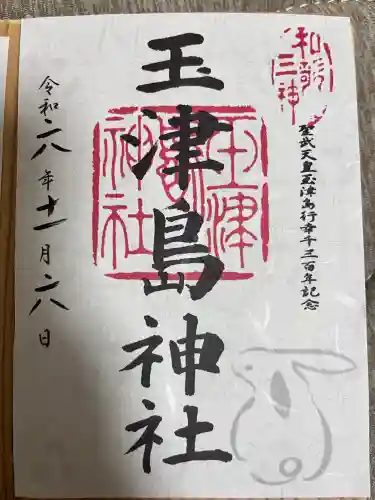 和歌三神
聖武天皇玉津島行幸千三百年記念
玉津島神社
玉津
島
神社
令和六年十一月六日